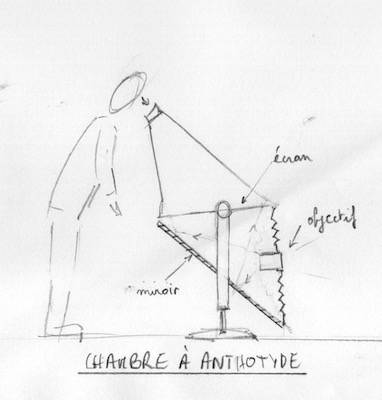 écran
objectif
miroir
CHAMBRE À ANTHOTYDE